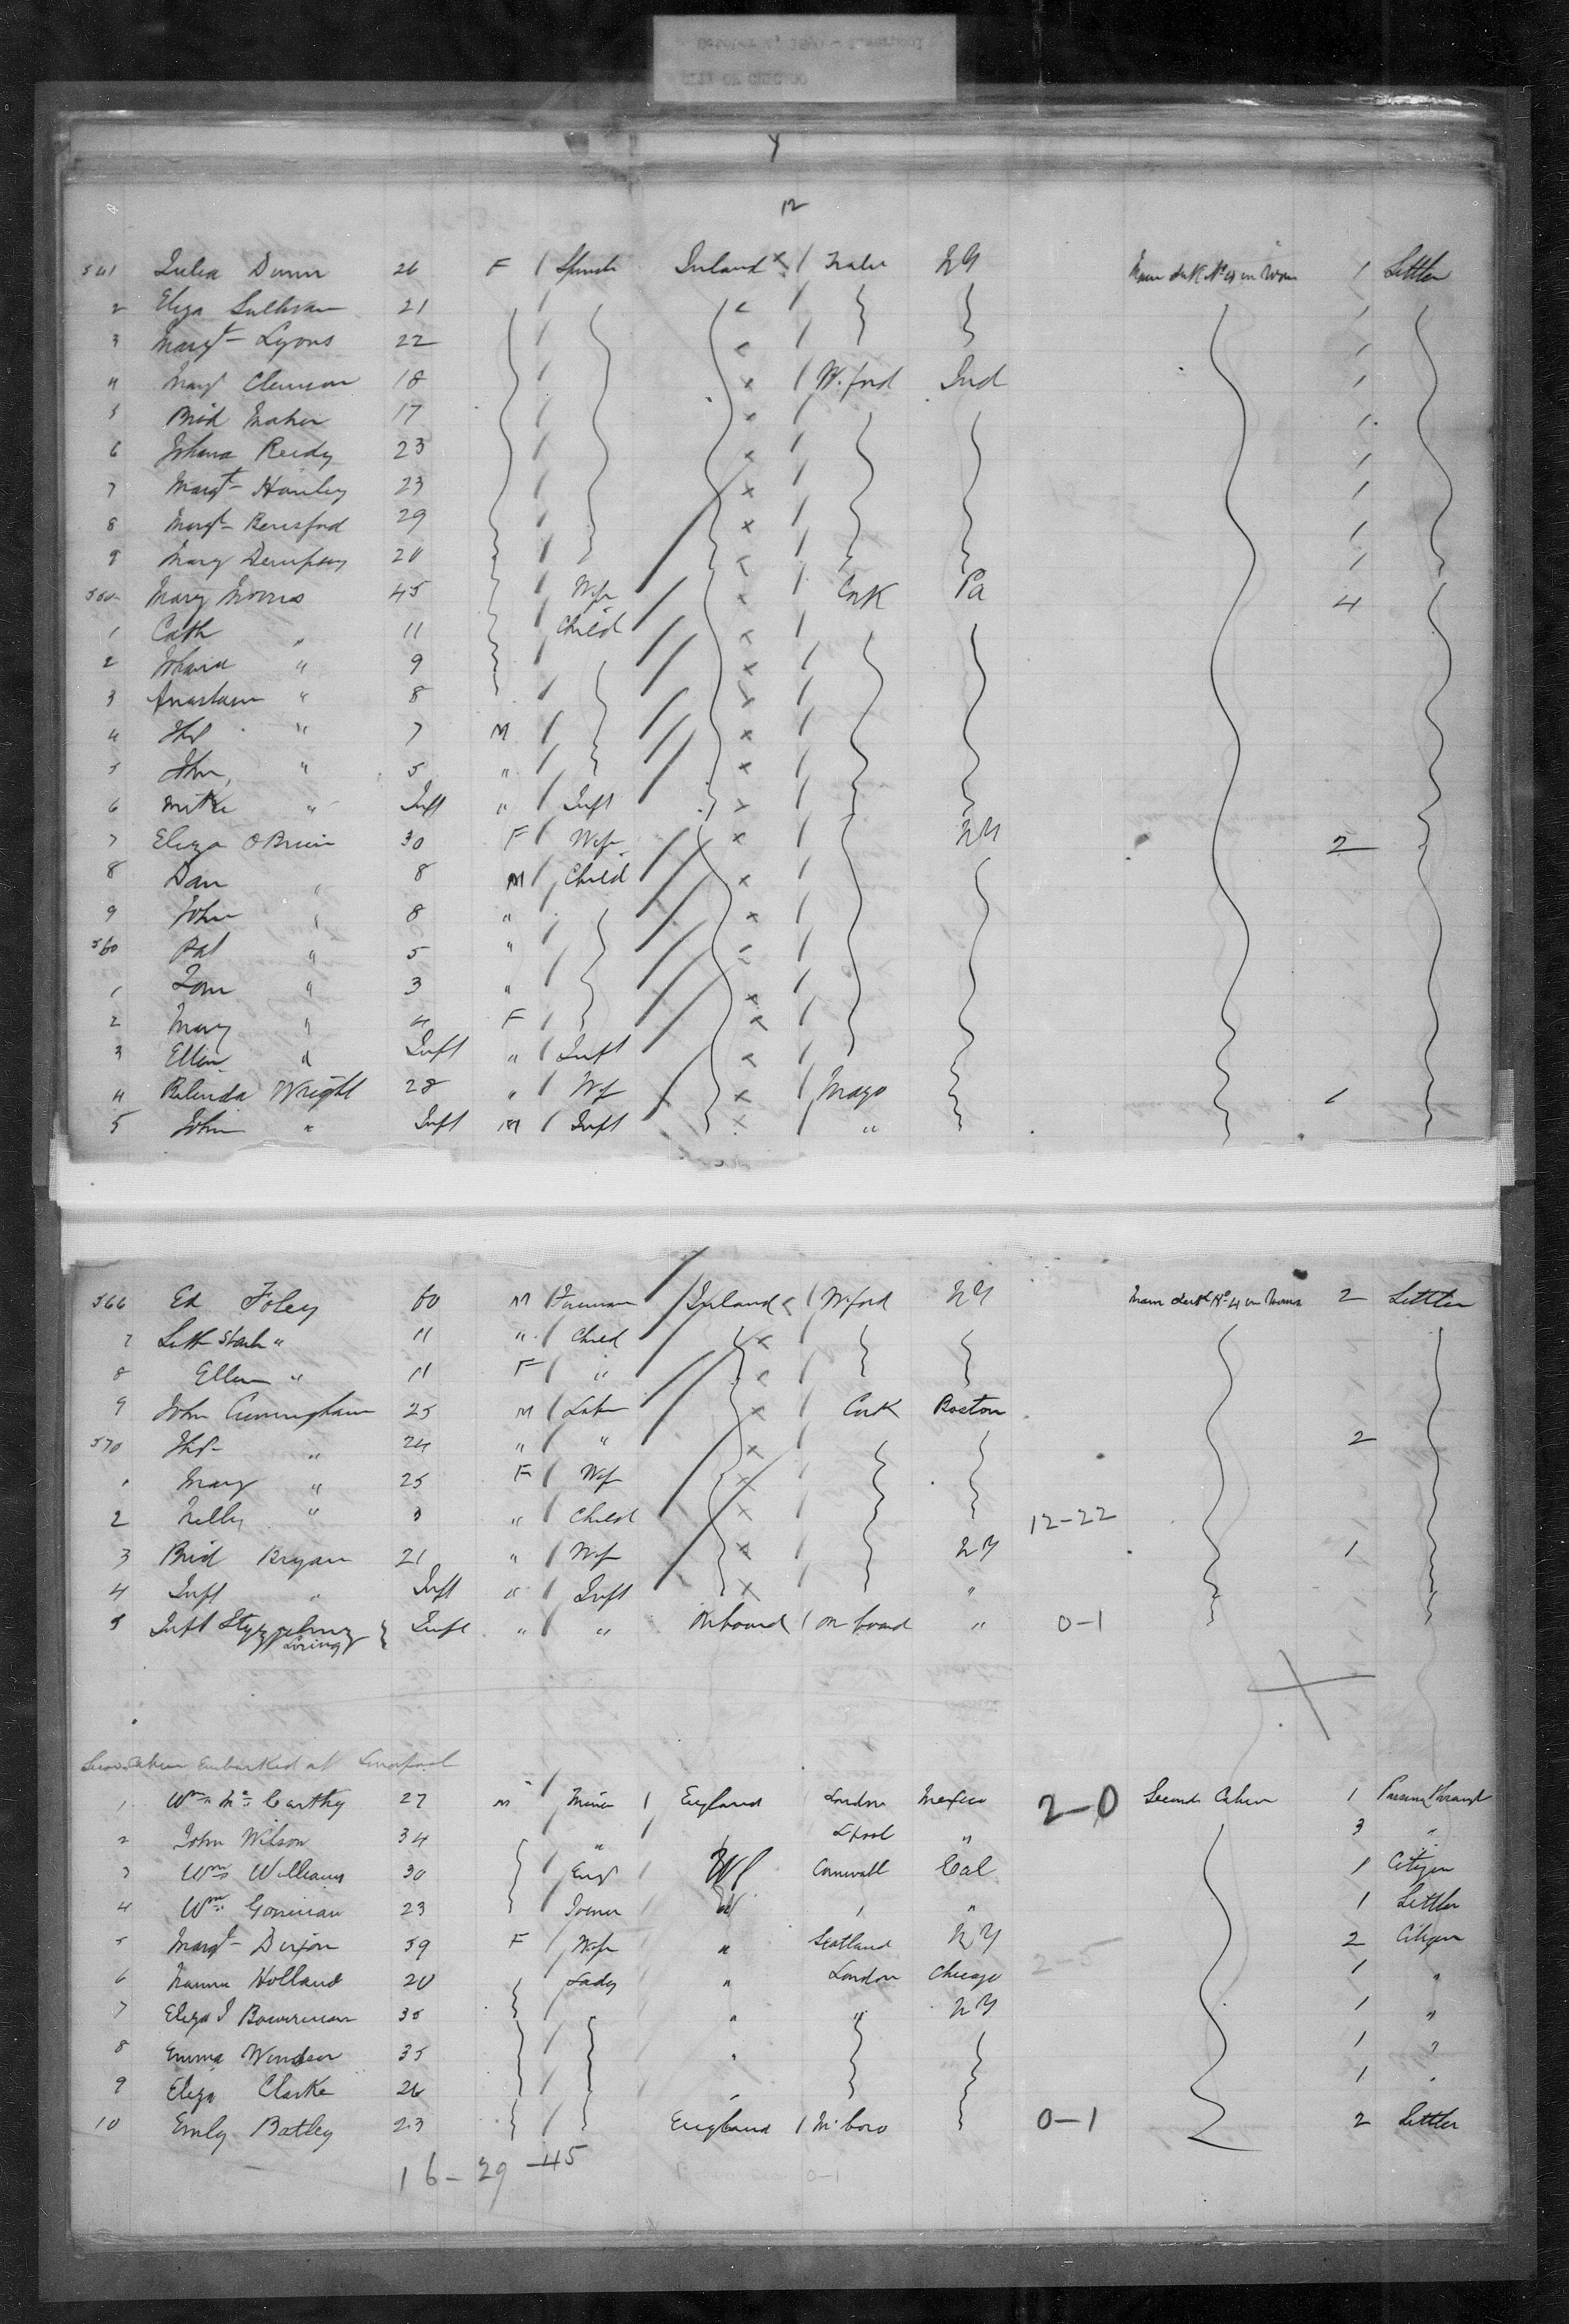 12
541 Julia Dunn 26 F / Spinster Ireland x / Tralee NY Main deck No 4 in Women 1 Settler
2 Eliza Sullivan 21 / / 1
3 Margt Lyons 22 / / 1
4 Margt 18 / x / W.ford Ind 1
5 Brid Maher 17 / x / 1
6 Johana Reidy 23 / x / 1
7 Margt Hanley 23 / x / 1
8 Margt Beresford 29 / x / 1
9 Mary Dempsey 20 / x / 1
550 Mary Morris 45 / Wife x / Cork Pa 4
1 Cath " 11 / Child x /
2 Johana " 9 / x /
3 Anastasia " 8 / x /
4 " 7 M / x /
5 John " 5 " / x /
6 Mike " Inft " / Inft x /
7 Eliza OBrien 30 F / Wife x / NY 2
8 Dan " 8 M / Child x /
9 John " 8 " / x /
560 Pat " 5 " / x /
1 Tom " 3 " / x /
2 Mary " 4 F / x /
3 Ellen " Inft " / Inft x /
4 Belinda Wright 28 " / Wife x / Mayo 1
5 John " Inft M / Inft x / "
566 Ed Foley 60 M / Ireland x / W.ford NY Main deck No 4 in Women 2 Settler
7 " 11 " / Child x /
8 Ellen " 11 F / " x /
9 John Cunningham 25 M / Labr x / Cork Boston
570 " 24 " / " x / 2
1 Mary " 25 F / Wife x /
2 Nelly " 3 " / Child x / 12-22
3 Brid Bryan 21 " / Wife x / NY 1
4 Inft " Inft " / Inft x "
5 Inft Inft " " On board / on board " 0-1
Second Cabin Embarked at Liverpool
1 Wm McCarthy 27 M / Miner / England London Mexico 2-0 Second Cabin 1 Passing through
2 John Wilson 34 / " / Lpool " 3 "
3 Wm Williams 30 / Eng / Cornwall Cal 1 Citizen
4 Wm Gorman 23 / Joiner / " 1 Settler
5 Margt Dixon 59 F / Wife " Scotland NY 2-5 2 Citizen
6 Holland 20 / Lady " London Chicago 1 "
7 Eliza J Bowerman 35 / " " NY 1 "
8 Emma Windsor 35 / " 1 "
9 Eliza Clarke 26 / " 1 "
10 Emily Batley 23 / England / M.boro 0-1 2 Settler
16-29-45
0-1